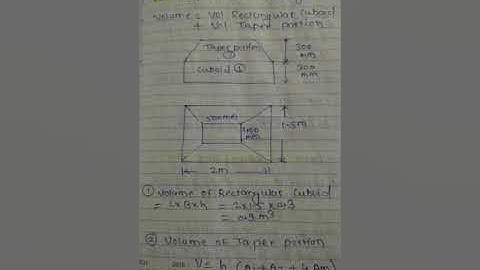 Volume = Vol Rectangular Cuboid
+ Vol Taper portion
Taper portion
②
300
mm
Cuboid ①
300
mm
500mm
400
mm
1.5m
2m
① Volume of Rectangular Cuboid
= L×B×h = 2×1.5×0.3
= 0.9m³
② Volume of Taper portion
V = h (A₁+A₂+4Am)